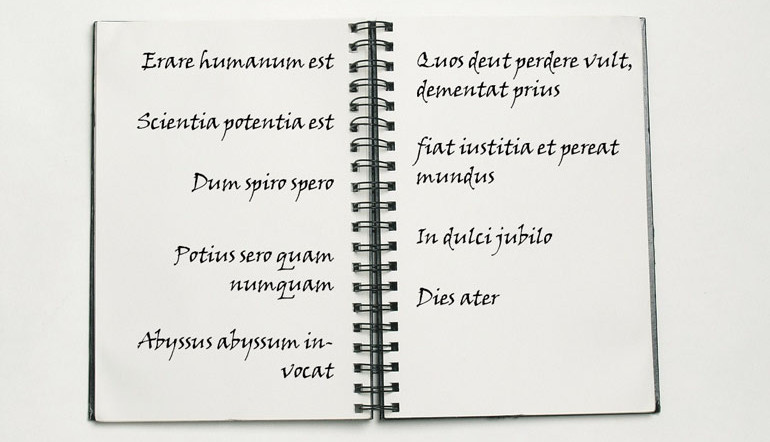 Erare humanum est
Scientia potentia est
Dum spiro spero
Potius sero quam
numquam
Abyssus abyssum in-
vocat
Quos deut perdere vult,
dementat prius
fiat iustitia et pereat
mundus
In dulci jubilo
Dies ater